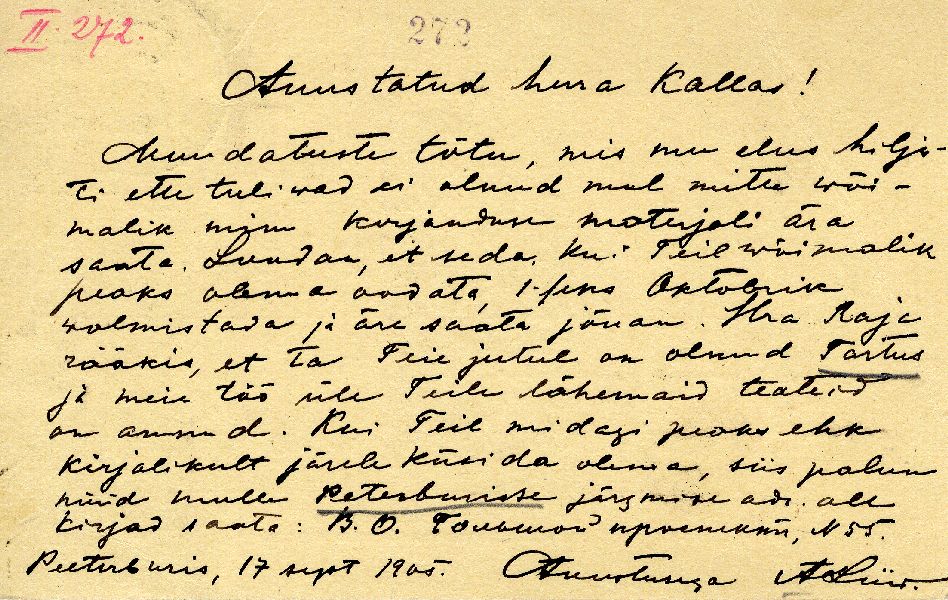 II. 272.
272
Auustatud herra Kallas!
Muudatuste tõtu, mis mu elus hilja-
ti ette tuliwad ei olnud mul mitte wõi-
malik minu korjanduse materjali ära
saata. Loodan, et seda, kui Teil wõimalik
peaks olema oodata, 1-seks Oktobrik
walmistada ja ära saata jõuan. Hra Raja
rääkis, et ta Teie jutul on olnud Tartus
ja meie töö üle Teile lähemaid teateid
on annud. Kui Teil midagi peaks ehk
kirjalikult järele küsida olema, siis palun
nüüd mulle Peterburisse järgmise adr. all
kirjad saata: В. О. Большой проспектъ, N 55.
Peeterburis, 17 sept 1905. Auustusega